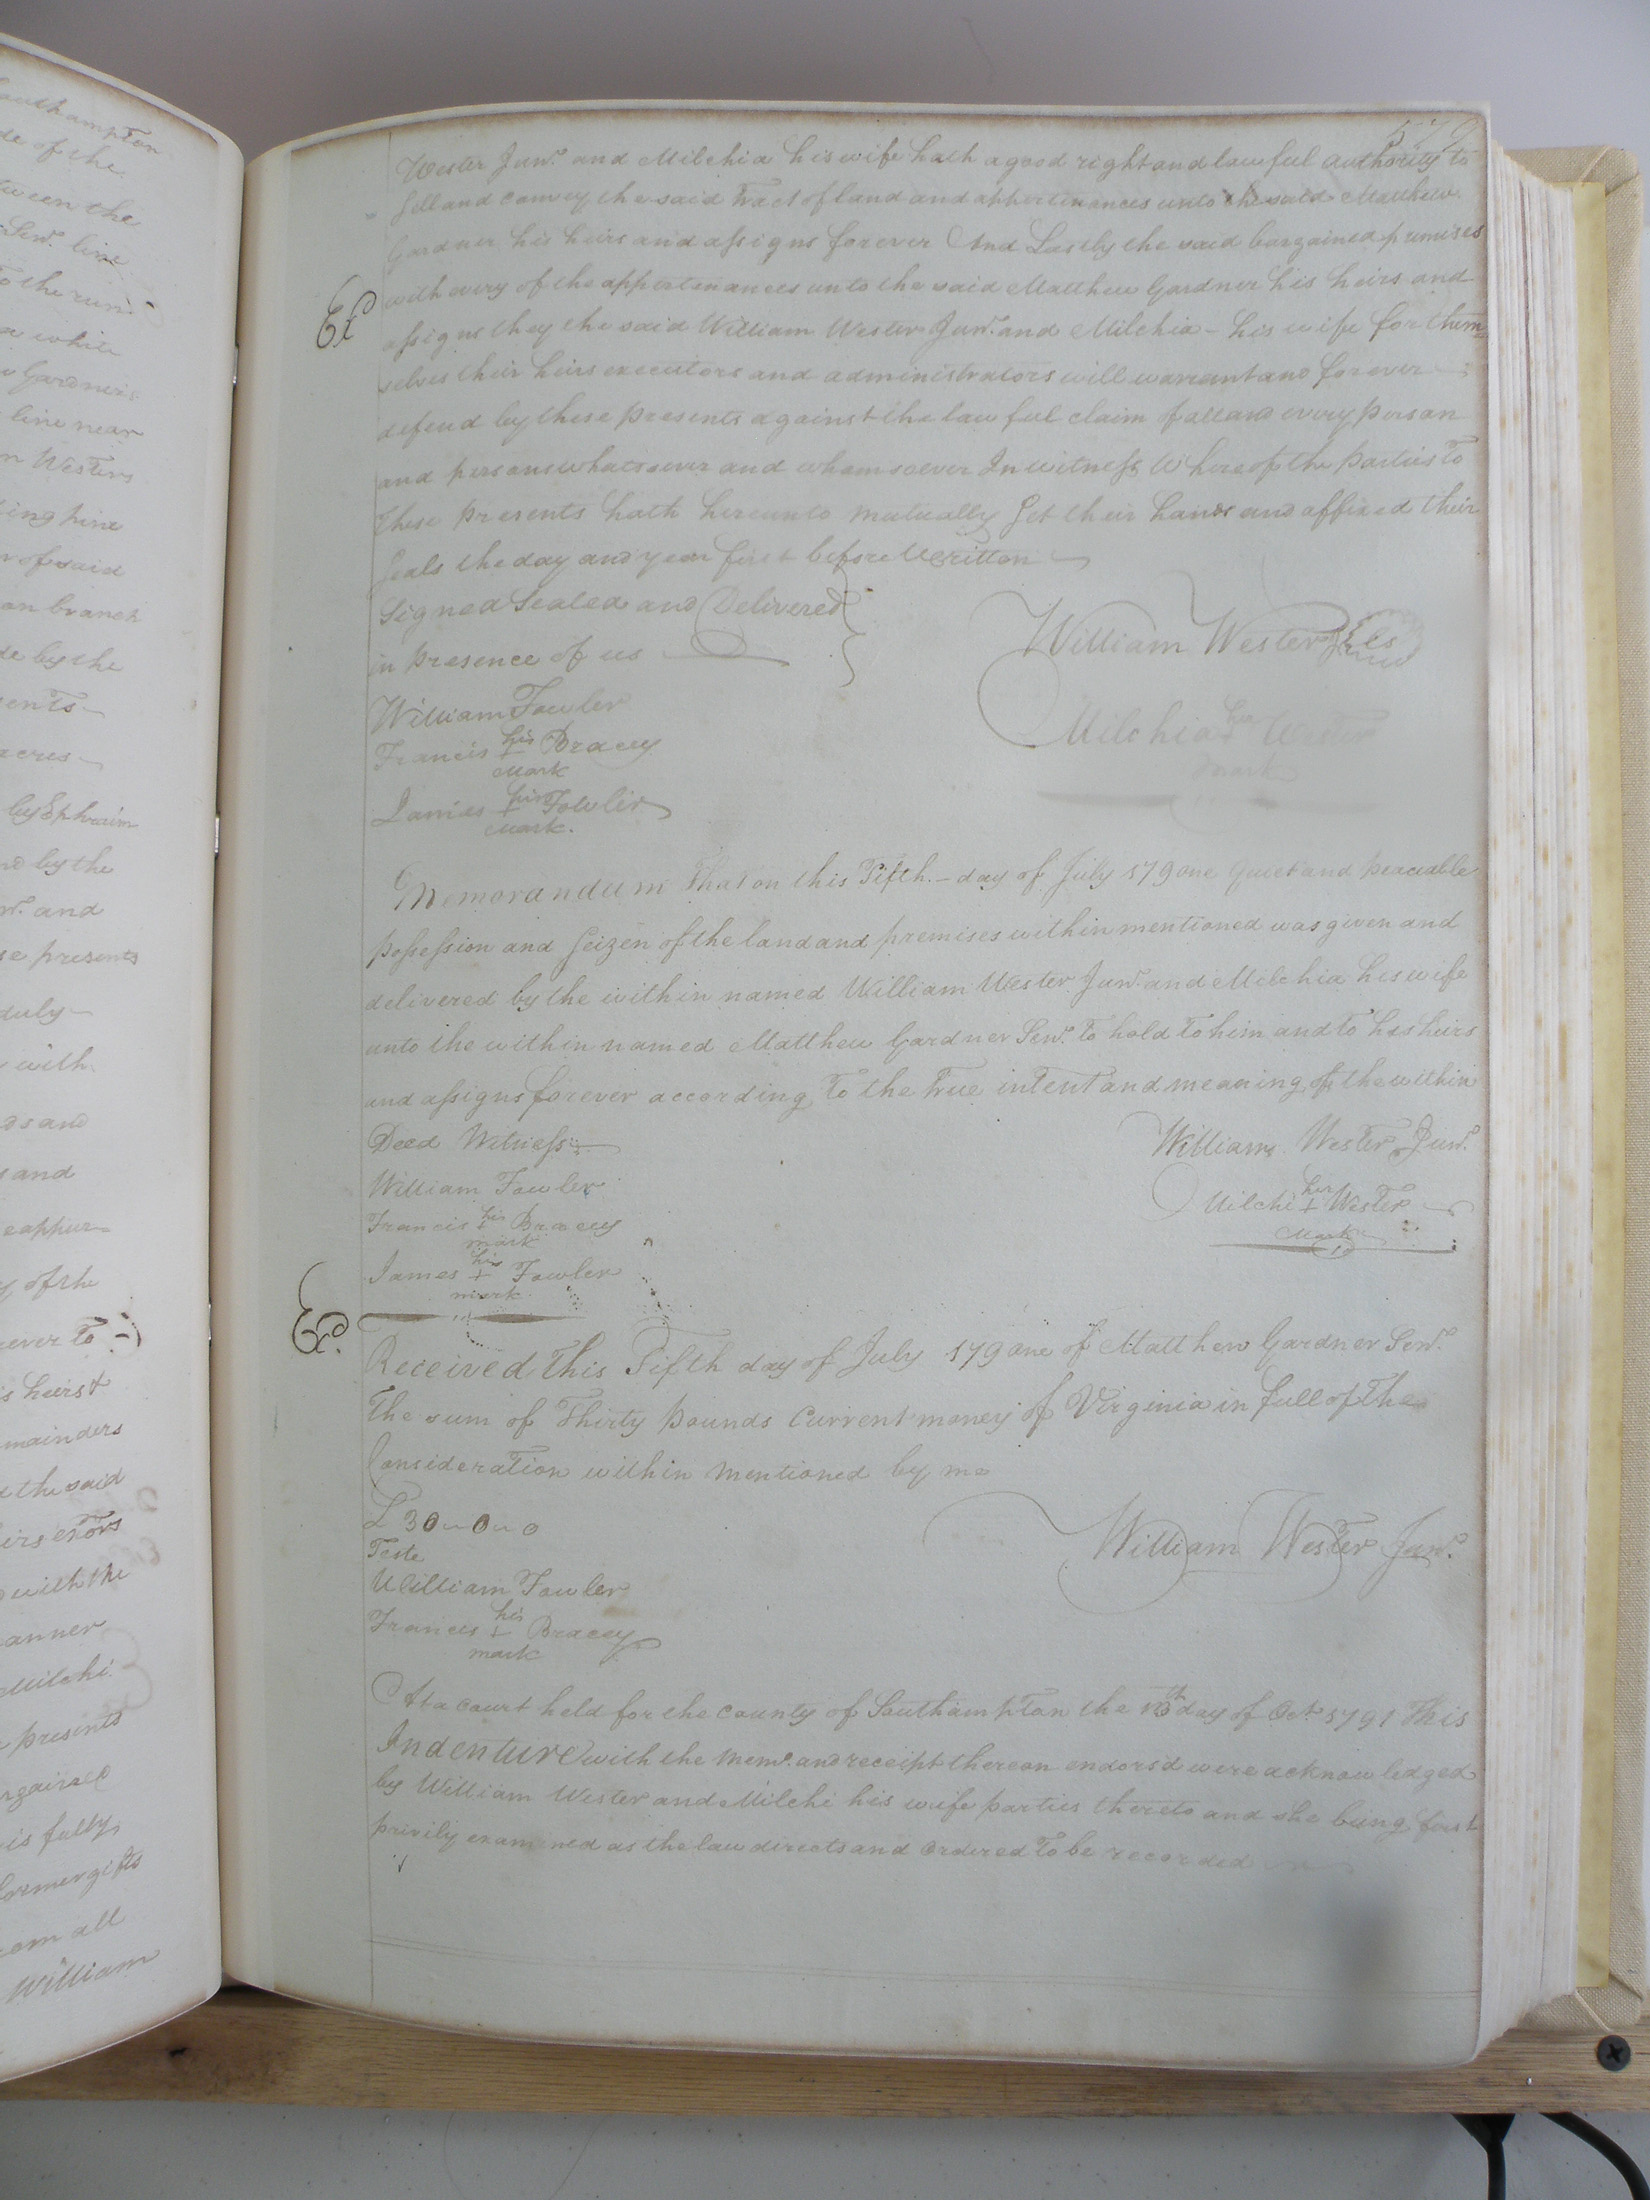 outhampton
de of the
tween the
Senr. line
to the run
a white
w Gardner's
line near
n Westers
ing pine
r of said
an branch
de by the
sents
acres
by Ephraim
nd by the
nr. and
se presents
duly
with
ds and
s and
e appur=
y of the
ever to
s heirs &
mainders
d the said
irs exors
with the
anner
Milchi
presents
rgained
is fully
former gifts
rom all
William
579
Wester Junr. and Milchia his wife hath a good right and lawful authority to
Sell and convey the said Tract of land and appertenances unto the said Matthew
Gardner his heirs and assigns forever And Lastly the said bargained premises
with every of the appertenances unto the said Matthew Gardner his heirs and
Exd
assigns they the said William Wester Junr. and Milchia - his wife for them=
selves their heirs executors and administrators will warrant and forever
defend by these presents against the lawful claim of all and every person
and persons whatsoever and whomsoever In witness Whereof the Parties to
these Presents hath hereunto mutually Set their hands and affixed their
Seals the day and year first before Written
Signed Sealed and Delivered
in Presence of us
William Wester Jr Ls
William Fowler
Francis his + Bracey
mark
Milchia her Wester
mark
James his + Fowler
mark.
Memorandum That on this Fifth - day of July 179one Quiet and peaceable
possession and Seizen of the land and premises within mentioned was given and
delivered by the within named William Wester Junr. and Milchia his wife
unto the within named Matthew Gardner Senr. to hold to him and to his heirs
and assigns forever according to the True intent and meaning of the within
Deed Witness
William Wester Junr.
William Fowler
Milchi her + Wester
mark
Francis his + Bracey
mark
James his + Fowler
mark
Exd.
Received This Fifth day of July 179one of Matthew Gardner Senr.
The sum of Thirty Pounds Current money of Virginia in full of the
Consideration within mentioned by me
£ 30 - 0 - 0
William Wester Junr.
Teste
William Fowler
Francis his + Bracey
mark
At a Court held for the County of Southampton the 13th day of Oct. 1791 This
Indenture with the Memo. and receipt thereon endorsd were acknowledged
by William Wester and Milchi his wife parties thereto and she being first
privily examined as the law directs and ordered to be recorded